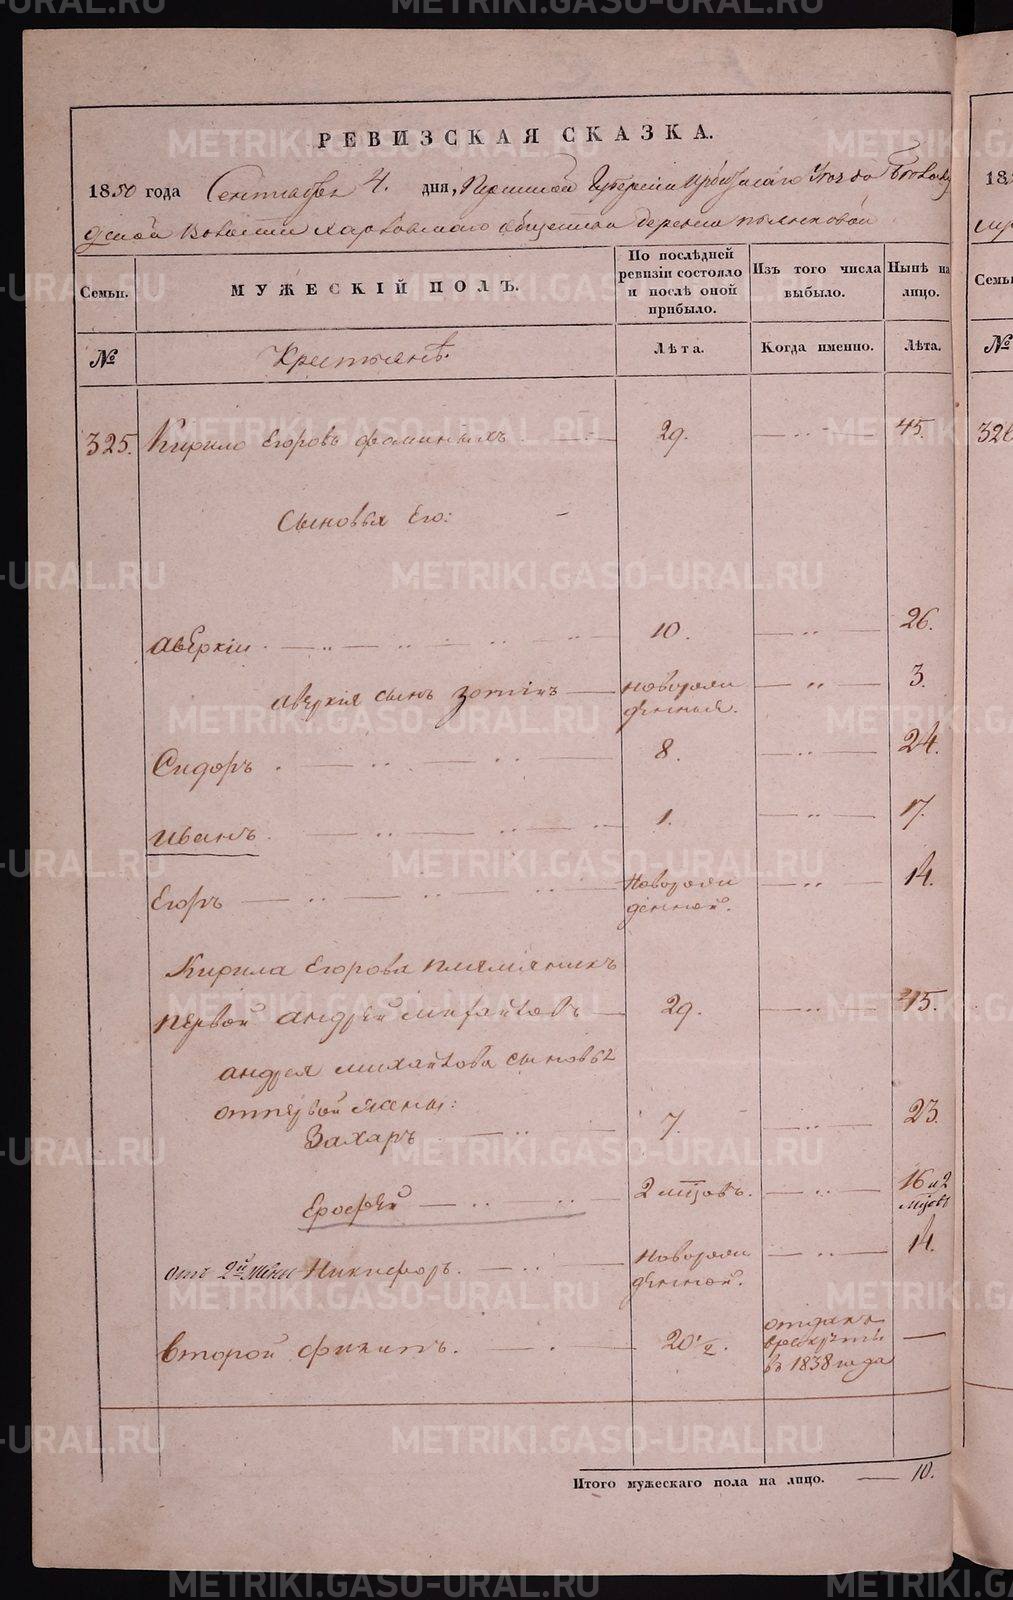 РЕВИЗСКАЯ СКАЗКА.
1850 года Сентября 4. дня, Пермской Губернии Ирбитского
дской Волости Харловского общества деревни
Семьи. МУЖЕСКІЙ ПОЛЪ. По послѣдней ревизіи состояло и послѣ оной прибыло. Изъ того числа выбыло. Нынѣ на лицо.
№ Крестьянѣ. Лѣта. Когда именно. Лѣта.
325. Кирило Егоровъ Фоминыхъ 29. 45.
Сыновья Его:
Аверкіи 10. 26.
Аверкія сынъ Зотикъ новорожденныя. 3.
Сидоръ 8. 24.
Иванъ 1. 17.
Егоръ Новорожденной. 14.
Кирила Егорова племянникъ
первой Андрей Михайловъ 29. 45.
Андрея Михайлова сыновья
отпервой жены:
Захаръ 7. 23.
Ерофей 2 мцовъ. 16 и 2 мцовъ
отъ 2й жены Никифоръ. Новорожденной. 14.
второй Филипъ. 20 1/2. отданъ врекруты въ 1838 года
Итого мужескаго пола на лицо. 10.
185
Семьи
№
326
METRIKI.GASO-URAL.RU